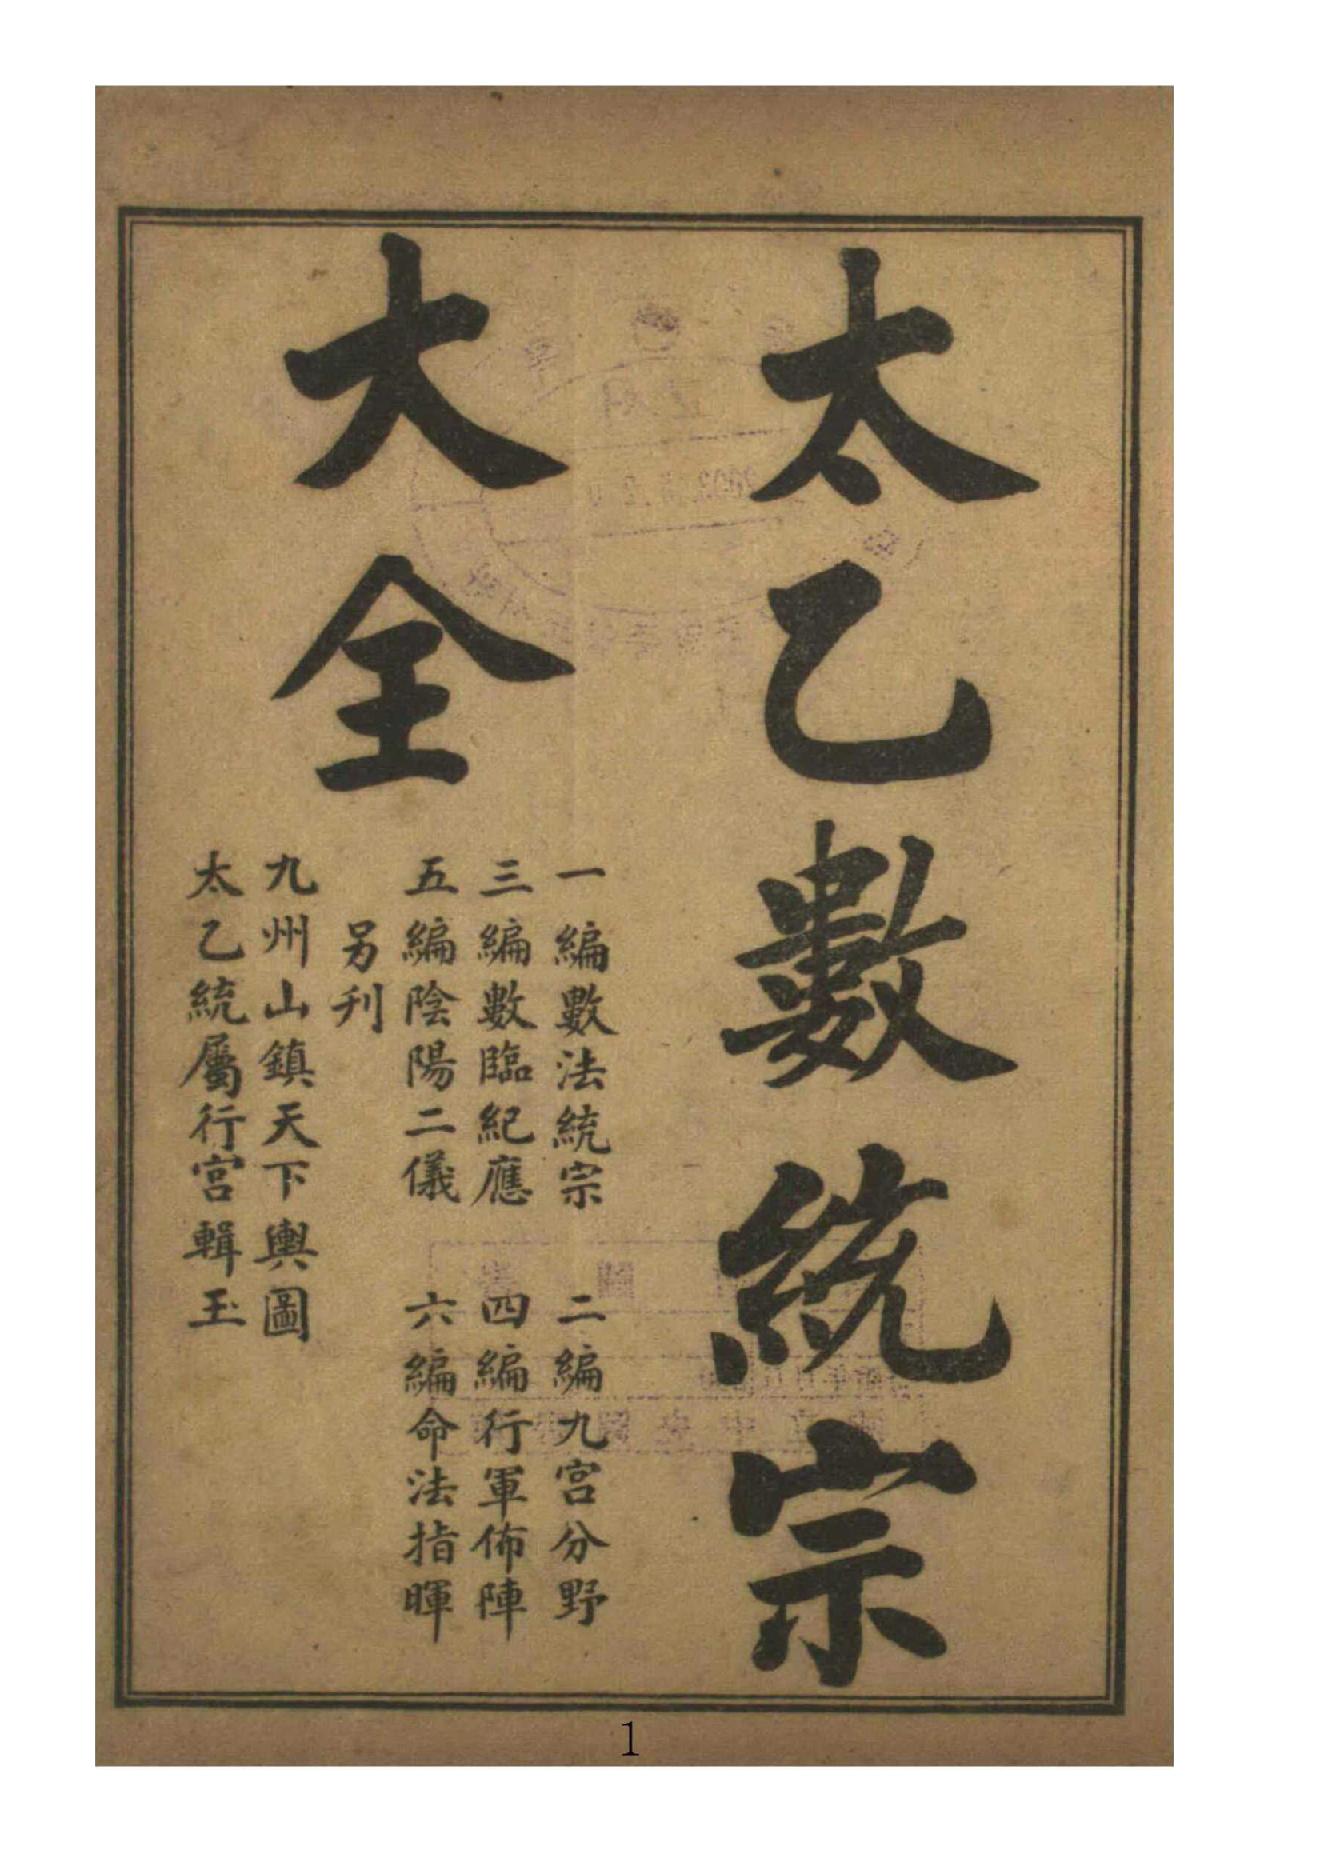 太乙數統宗
大全
一編數法統宗　二編九宮分野
三編數臨紀應　四編行軍佈陣
五編陰陽二儀　六編命法指暉
另刋
九州山鎮天下輿圖
太乙統屬行宮輯玉
1